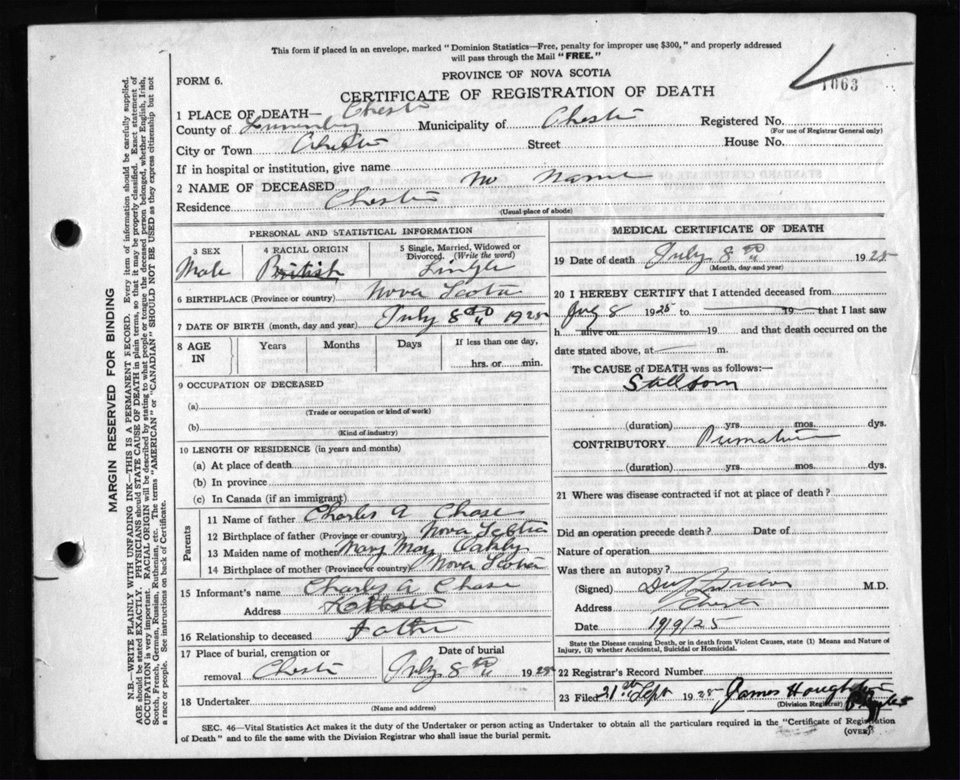 This form if placed in an envelope, marked "Dominion Statistics—Free, penalty for improper use $300," and properly addressed
will pass through the Mail "FREE."
FORM 6.
PROVINCE OF NOVA SCOTIA
1663
CERTIFICATE OF REGISTRATION OF DEATH
1 PLACE OF DEATH— Chester
County of Lunenburg Municipality of Chester Registered No.
(For use of Registrar General only)
City or Town Chester Street House No.
If in hospital or institution, give name
2 NAME OF DECEASED No Name
Residence Chester
(Usual place of abode)
PERSONAL AND STATISTICAL INFORMATION
3 SEX 4 RACIAL ORIGIN 5 Single, Married, Widowed or
Divorced. (Write the word)
Male British Single
6 BIRTHPLACE (Province or country) Nova Scotia
7 DATE OF BIRTH (month, day and year) July 8th 1925
8 AGE IN Years Months Days If less than one day,
hrs. or min.
9 OCCUPATION OF DECEASED
(a)
(Trade or occupation or kind of work)
(b)
(Kind of industry)
10 LENGTH OF RESIDENCE (in years and months)
(a) At place of death
(b) In province
(c) In Canada (if an immigrant)
Parents
11 Name of father Charles A Chase
12 Birthplace of father (Province or country) Nova Scotia
13 Maiden name of mother Mary May
14 Birthplace of mother (Province or country) Nova Scotia
15 Informant's name Charles A. Chase
Address
16 Relationship to deceased Father
17 Place of burial, cremation or Date of burial
removal Chester July 8th 1925
18 Undertaker
(Name and address)
MEDICAL CERTIFICATE OF DEATH
19 Date of death July 8th 1925
(Month, day and year)
20 I HEREBY CERTIFY that I attended deceased from
8 1925 to 19 that I last saw
h alive on 19 and that death occurred on
date stated above, at m.
The CAUSE of DEATH was as follows:—
Stillborn
(duration) yrs. mos. dys.
CONTRIBUTORY Premature
(duration) yrs. mos. dys.
21 Where was disease contracted if not at place of death?
Did an operation precede death? Date of
Nature of operation
Was there an autopsy?
(Signed) M.D.
Address Chester
Date 19/9/25
State the Disease causing Death, or in death from Violent Causes, state (1) Means and Nature of
Injury, (2) whether Accidental, Suicidal or Homicidal.
22 Registrar's Record Number
23 Filed 21st Sept 1925 James
(Division Registrar)
SEC. 46—Vital Statistics Act makes it the duty of the Undertaker or person acting as Undertaker to obtain all the particulars required in the "Certificate of Registration
of Death" and to file the same with the Division Registrar who shall issue the burial permit.
(OVER)
MARGIN RESERVED FOR BINDING
N.B. WRITE PLAINLY WITH UNFADING INK—THIS IS A PERMANENT RECORD. Every item of information should be carefully supplied.
AGE should be stated EXACTLY. PHYSICIANS should STATE CAUSE OF DEATH in plain terms, so that it may be properly classified. Exact statement of
OCCUPATION is very important. RACIAL ORIGIN will be described by stating to what people or tongue the deceased person belonged, whether English, Irish,
Scotch, French, German, Russian, Ruthenian, etc. The terms "AMERICAN" or "CANADIAN" SHOULD NOT BE USED as they express citizenship but not
a race or people. See instructions on back of Certificate.